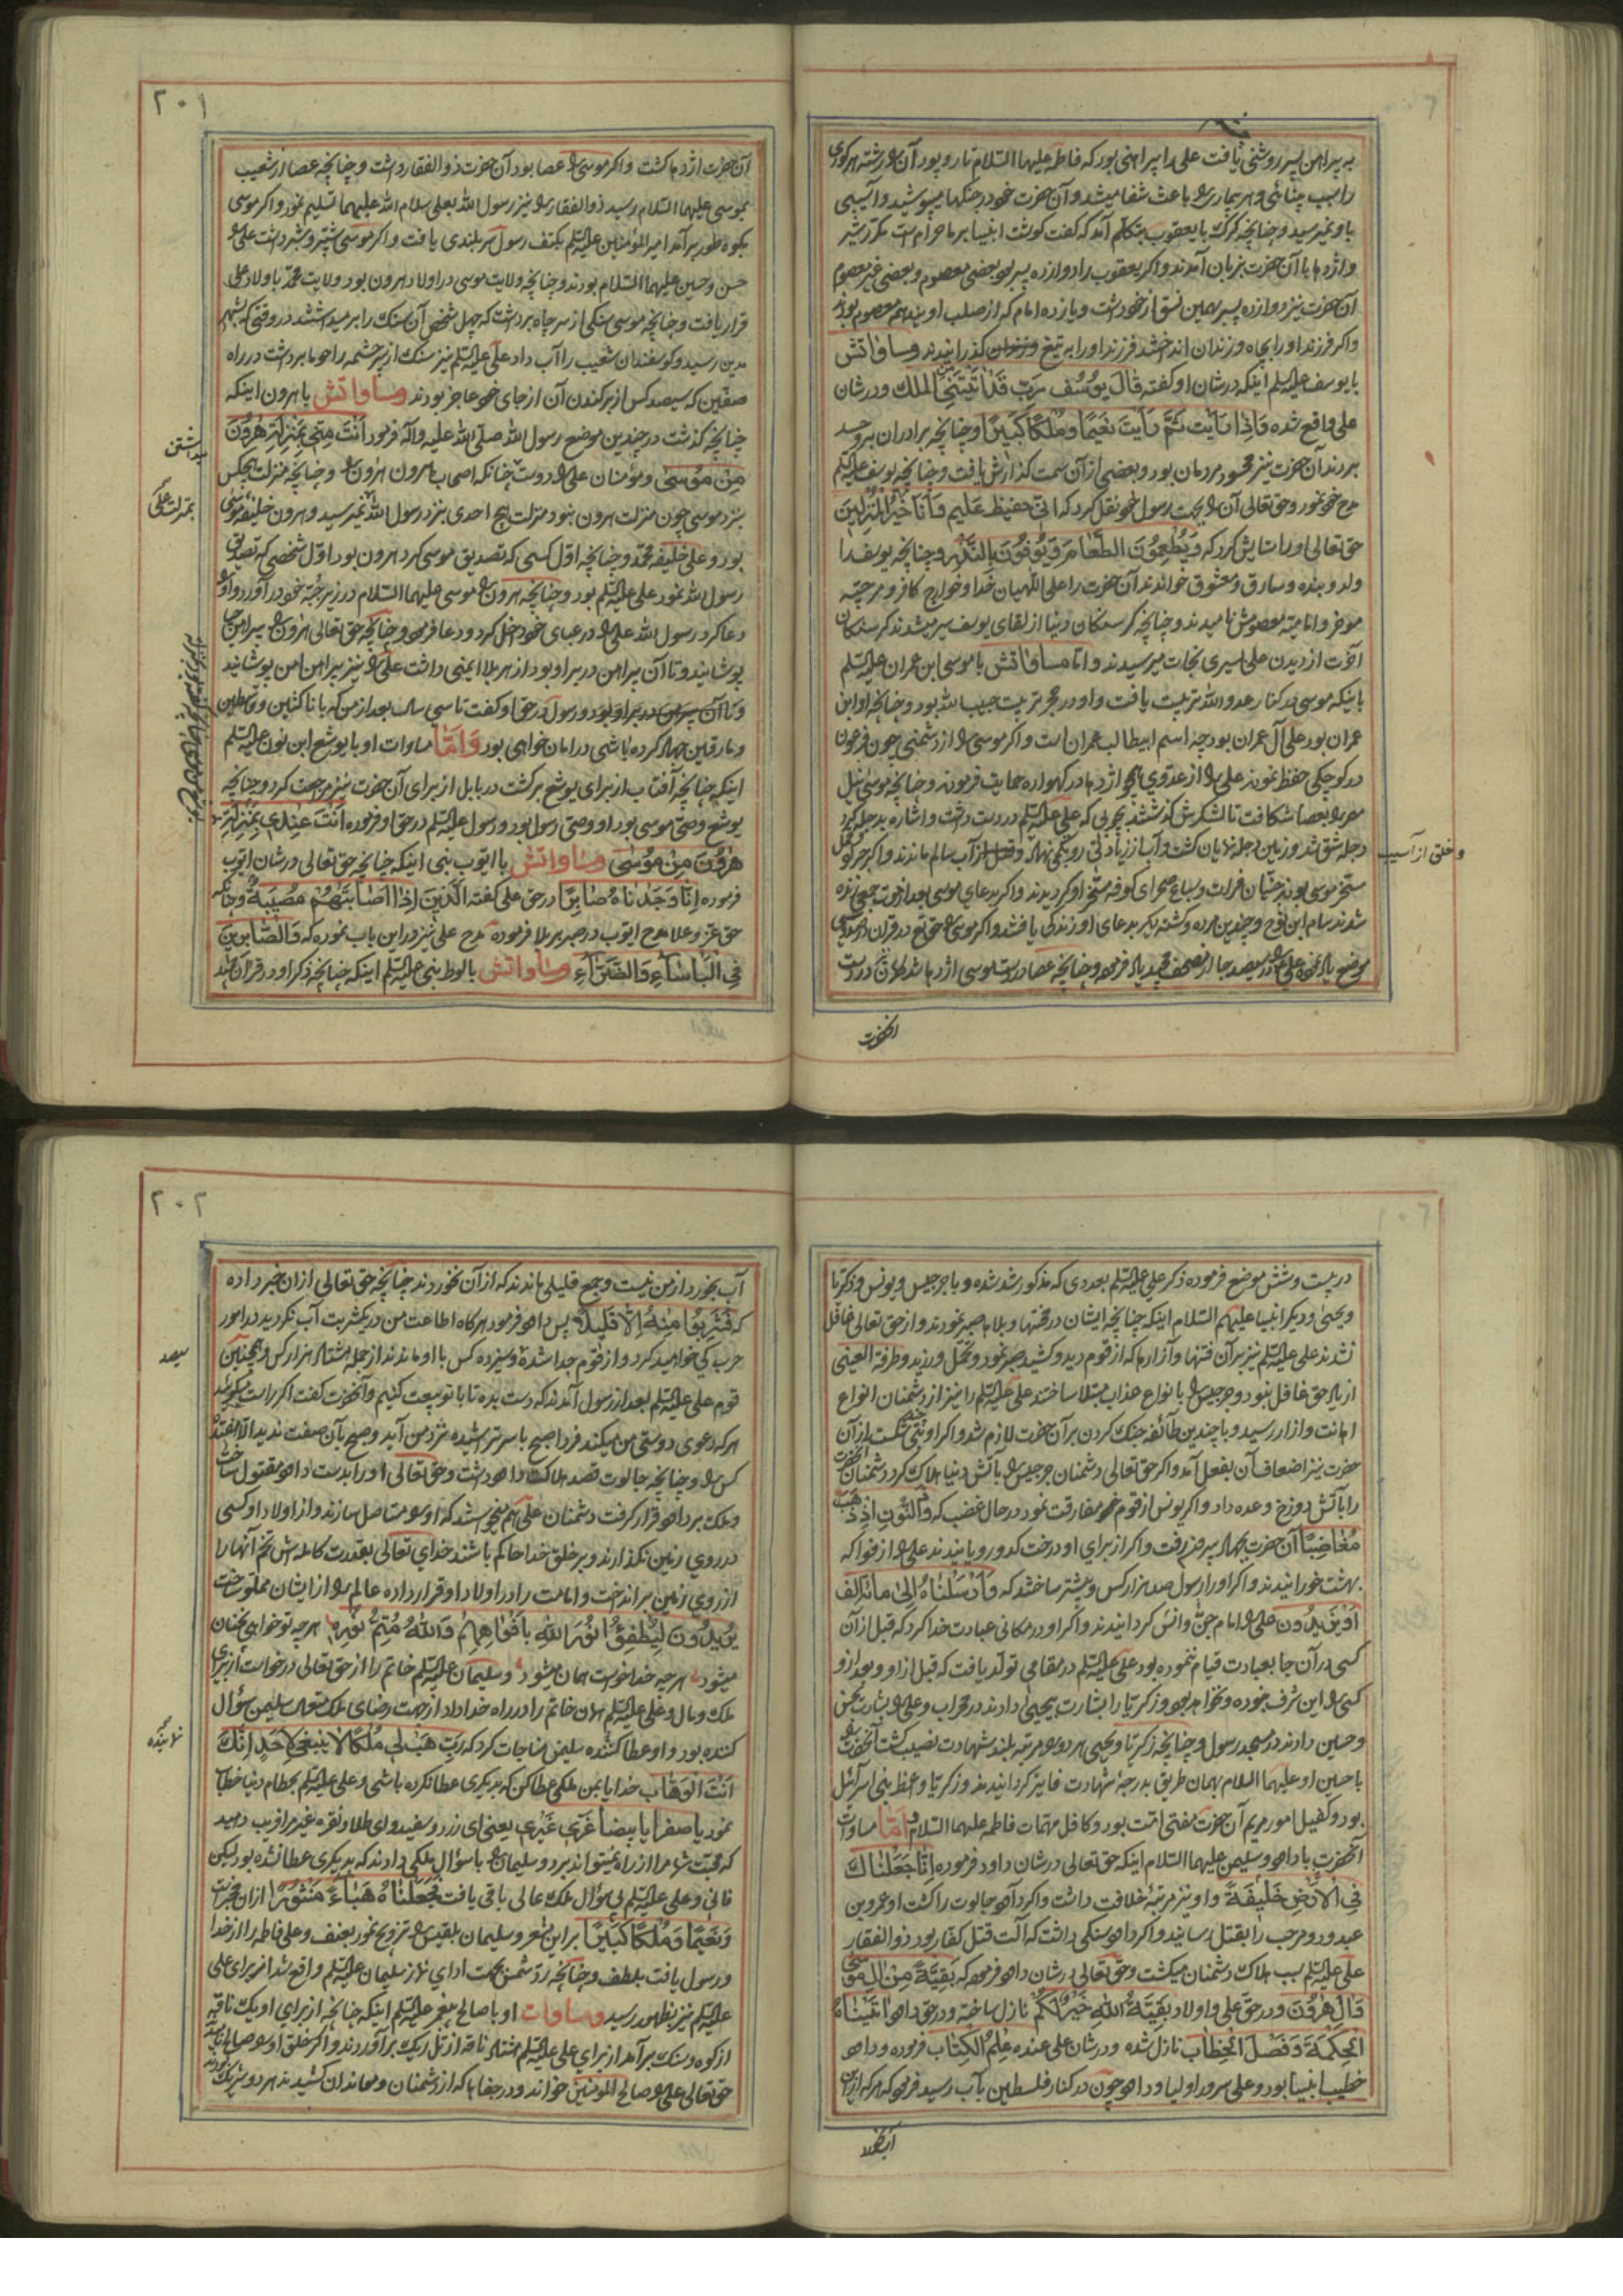 به پیراهن پسر روشنی یافت علی را پیراهنی بود که فاطمه علیهما السلام تار و پود آن را رشته هر کوری
را سبب بینائی و هر بیمار را باعث شفا میشد و آن حضرت خود در جنگها میپوشید و آسیبی
باو نمیرسید و چنانچه گرگ با یعقوب بتکلم آمد که گفت گوشت انبیا بر ما حرام است مکرر شیر
و اژدها با آن حضرت بزبان آمدند و اگر یعقوب را دوازده پسر بود بعضی معصوم و بعضی غیر معصوم
آن حضرت نیز دوازده پسر بهمین نسق از خود داشت و یازده امام که از صلب اویند هم معصوم بودند
و اگر فرزند او را بچاه و زندان انداختند فرزند او را بر تیغ گذرانیدند و مساواتش
با یوسف علیه السلم اینکه در شان او گفته قال یوسف رب قد اتیتنی من الملک و در شان
علی واقع شده و اذا رایت ثم رایت نعیما و ملکا کبیرا و چنانچه برادران بر وی حسد
بردند آن حضرت نیز محسود مردمان بود و بعضی از آن سمت گذارش یافت و چنانچه یوسف علیه السلم
مدح خود نمود و حق تعالی آن را بجهت رسول خود نقل کرد که انی حفیظ علیم و أنا خیر المنزلین
حق تعالی او را ستایش کرد که و یطعمون الطعام و یوفون بالنذر و چنانچه یوسف را
ولد و بنده و سارق و معشوق خواندند آن حضرت را علی اللهیان خدا و خوارج کافر و مرجئه
موخر و امامیه معصومش نامیدند و چنانچه گرسنگان دنیا از لقای یوسف سیر میشدند گرسنگان
آخرت از دیدن علی سیری نجات میرسیدند و اما مساواتش با موسی ابن عمران علیه السلم
باینکه موسی در کنار عدو الله تربیت یافت و او در حجر تربیت حبیب الله بود و چنانچه او ابن
عمران بود علی آل عمران بود چه اسم ابیطالب عمران است و اگر موسی را از دشمنی چون فرعون
در کوچکی حفظ نمود علی را از عدوی همچو اژدها در گهواره حمایت فرمود و چنانچه موسی نیل
مصر را بعصا شکافت تا لشکرش گذشتند بچوبی که علی علیه السلم در دست داشت و اشاره بدجله کرد
دجله شق شد و زمین دجله نمایان گشت و
و خلق از آسیب
مسخر موسی بودند جنیان فرات و سباع صحرای کوفه مسخر او گردیدند و اگر بدعای موسی بعد از موت جمعی زنده
شدند سام ابن نوح و چندین مرده و کشته دیگر بدعای او زندگی یافتند و اگر موسی را حق تع در قران در سی
موضع یاد نموده علی را در سیصد جا از مصحف مجید یاد فرموده و چنانچه عصا در دست موسی اژدها شد کمان در دست
انحضرت
۲۰۱
آن حضرت اژدها گشت و اگر موسی را عصا بود آن حضرت ذوالفقار داشت و چنانچه عصا از شعیب
بموسی علیهما السلام رسید ذوالفقار را نیز رسول الله بعلی سلام الله علیهما تسلیم نمود و اگر موسی
بکوه طور برآمد امیر المؤمنین علیه السلم بکتف رسول سر بلندی یافت و اگر موسی شبر و شبیر داشت علی را
حسن و حسین علیهما السلام بودند و چنانچه ولایت موسی در اولاد هرون بود ولایت محمد باولاد علی
قرار یافت و چنانچه موسی سنگی از سر چاه برداشت که چهل شخص آن سنگ را برمیداشتند در وقتی که بشهر
مدین رسید و گوسفندان شعیب را آب داد علی علیه السلم نیز سنگ از سر چشمه راحوما برداشت در راه
صفین که سیصد کس از بر کندن آن از جای خود عاجز بودند و مساواتش با هرون اینکه
چنانچه گذشت در چندین موضع رسول الله صلی الله علیه و آله فرمود أنت منی بمنزلة هرون
میداشتن
من موسی و مؤمنان علی را دوست چنانکه اصحاب هرون هرون را و چنانچه منزلت هیچکس
بمنزلت علی
نزد موسی چون منزلت هرون نبود منزلت هیچ احدی نزد رسول الله نمیرسید و هرون خلیفه موسی
بود و علی خلیفه محمد و چنانچه اول کسی که تصدیق موسی کرد هرون بود اول شخصی که تصدیق
رسول الله نمود علی علیه السلم بود و چنانچه هرون را موسی علیهما السلام در زیر جبه خود درآورد و او را
دعا کرد رسول الله علی را در عبای خود داخل کرد و دعا فرمود و چنانچه حق تعالی هرون را پیراهن حیا
پوشانید و تا آن پیراهن در بر او بود از هر بلا ایمنی داشت علی را نیز پیراهن امن پوشانید
و رسول در حق او گفت تا سی سال بعد از من که با ناکثین و قاسطین
و مارقین جهاد کرده باشی در امان خواهی بود و اما مساوات او با یوشع ابن نون علیه السلم
اینکه چنانچه آفتاب از برای یوشع برگشت در بابل از برای آن حضرت نیز مرجعت کرد و چنانچه
یوشع وصی موسی بود او وصی رسول بود و رسول علیه السلم در حق او فرموده أنت عندی بمنزلة
هرون من موسی و مساواتش با ایوب نبی اینکه چنانچه حق تعالی در شان ایوب
فرموده إنا وجدناه صابرا در حق علی گفته الذین إذا اصابتهم مصیبة و چنانکه
حق عز و علا مدح ایوب در صبر بر بلا فرموده مدح علی نیز در این باب نموده که و الصابرین
فی البأساء و الضراء و مساواتش با لوط نبی علیه السلم اینکه چنانچه ذکر او در قران مجید
در بیست و شش موضع فرموده ذکر علی علیه السلم بعددی که مذکور شد شده و با جرجیس و یونس و زکریا
و یحیی و دیگر انبیا علیهم السلام اینکه چنانچه ایشان در محنتها و بلاها صبر نمودند و از حق تعالی غافل
نشدند علی علیه السلم نیز بر آن فتنها و آزارها که از قوم دید و کشید صبر نمود و تحمل ورزید و طرفة العینی
از یاد حق غافل نبود و جرجیس را بانواع عذاب مبتلا ساختند علی علیه السلم را نیز از دشمنان انواع
اهانت و ازار رسید و با چندین طائفه جنگ کردن بر آن حضرت لازم شد و اگر او بتی چند شکست از آن
حضرت نیز اضعاف آن بفعل آمد و اگر حق تعالی دشمنان جرجیس را بآتش دنیا هلاک کرد دشمنان آنحضرت
را بآتش دوزخ وعده داد و اگر یونس از قوم خود مفارقت نمود در حال غضب که و ذا النون اذ ذهب
مغاضبا آن حضرت بجهاد پیر فتنه رفت و اگر از برای او درخت کدو رویانیدند علی را از فواکه
بهشت خورانیدند و اگر او را رسول صد هزار کس و بیشتر ساختند که و أرسلناه إلی مائة الف
أو یزیدون علی را امام جن و انس گردانیدند و اگر او در مکانی عبادت خدا کرد که قبل از آن
کسی در آن جا بعبادت قیام ننموده بود علی علیه السلم در مقامی تولد یافت که قبل از او و بعد از او
کسی را این شرف نبوده و نخواهد بود و زکریا را بشارت بیحیی دادند در محراب و علی را بشارت بحسن
و حسین دادند در مسجد رسول و چنانچه زکریا و یحیی هر دو را مرتبه بلند شهادت نصیب گشت آنحضرت را
با حسین او علیهما السلام بهمان طریق بدرجه شهادت فایز گردانیدند و زکریا واعظ بنی اسرائیل
بود و کفیل امور مریم آن حضرت مفتی امت بود و کافل مهمات فاطمه علیهما السلام و اما مساوات
آنحضرت با داود و سلیمن علیهما السلام اینکه حق تعالی در شان داود فرموده إنا جعلناک
فی الارض خلیفة و او نیز مرتبه خلافت داشت و اگر داود جالوت را کشت او عمرو بن
عبدود و مرحب را بقتل رسانید و اگر داود سنگی داشت که آلت قتل کفار بود ذوالفقار
علی علیه السلم سبب هلاک دشمنان میگشت و حق تعالی در شان داود فرموده که بقیة من ال موسی
و ال هرون و در حق علی و اولاد بقیة الله خیر لکم نازل ساخته و در حق داود اتیناه
الحکمة و فصل الخطاب نازل شده و در شان علی عنده علم الکتاب فرموده و داود
خطیب انبیا بود و علی سرور اولیا و داود چون در کنار فلسطین بآب رسید فرمود که هر که از این
۲۰۲
آب بخورد از من نیست و جمع قلیلی ماندند که از آن نخوردند چنانچه حق تعالی ازان خبر داده
که فشربوا منه إلا قلیلا پس داود فرمود هرگاه اطاعت من در یکشربت آب نکردید در امور
سیصد
حرب کی خواهید کرد و از قوم جدا شده و سیزده کس با او ماندند از جمله هشتاد هزار کس و همچنین
قوم علی علیه السلم بعد از رسول آمدند که دست بده تا با تو بیعت کنیم و آنحضرت گفت اگر راست میگوئید
هر که دعوی دوستی من میکند فردا صبح با سر تراشیده نزد من آید و صبح بآن صفت ندید الا هفتده
کس را و چنانچه جالوت قصد هلاکت داود داشت و حق تعالی او را بدست داود مقتول ساخت
و ملک بر داود قرار گرفت دشمنان علی هم میخواستند که او را مستأصل سازند و از اولاد او کسی
در روی زمین نگذارند و بر خلق خدا حاکم باشند خدای تعالی بقدرت کامله اش تخم آنها را
از روی زمین برانداخت و امامت را در اولاد او قرار داده عالم را از ایشان مملو ساخت
یریدون لیطفؤا نور الله بافواههم و الله متم نوره هر چه تو خواهی نچنان
میشود هر چه خدا خواست همان میشود و سلیمان علیه السلم خاتم را از حق تعالی درخواست از برای
ملک و مال و علی علیه السلم همان خاتم را در راه خدا داد از جهت رضای ملک متعال سلیمن سؤال
نماینده
کننده بود و او عطا کننده سلیمن مناجات کرد که رب هب لی ملکا لا ینبغی لاحد انک
انت الوهاب خدایا بمن ملکی عطا کن که بدیگری عطا نکرده باشی و علی علیه السلم بحطام دنیا خطاب
نمود یا صفرا یا بیضا غری غیری یعنی ای زرد و سفید و ای طلا و نقره غیر مرا فریب دهید
که محبت شما مرا از راه نمیتواند برد و سلیمان را با سؤال ملکی دادند که بدیگری عطا نشده بود لیکن
فانی و علی علیه السلم بی سؤال ملک عالی باقی یافت فجعلناه هباء منثورا
و نعیما و ملکا کبیرا براین شعر و سلیمان بلقیس را تزویج نمود بعنف و علی فاطمه را از خدا
و رسول یافت بلطف و چنانچه رد شمس بجهت ادای نماز سلیمان علیه السلم واقع شد از برای علی
علیه السلم نیز بظهور رسید و مساوات او با صالح پیغمبر علیه السلم اینکه چنانچه از برای او یک ناقه
از کوه و سنگ برآمد از برای علی علیه السلم هشتاد ناقه از تل ریگ برآوردند و اگر خلق او را صالح نامیدند
حق تعالی علی را صالح المؤمنین خواند و در جفاها که از دشمنان و معاندان کشیدند هر دو شریک بودند